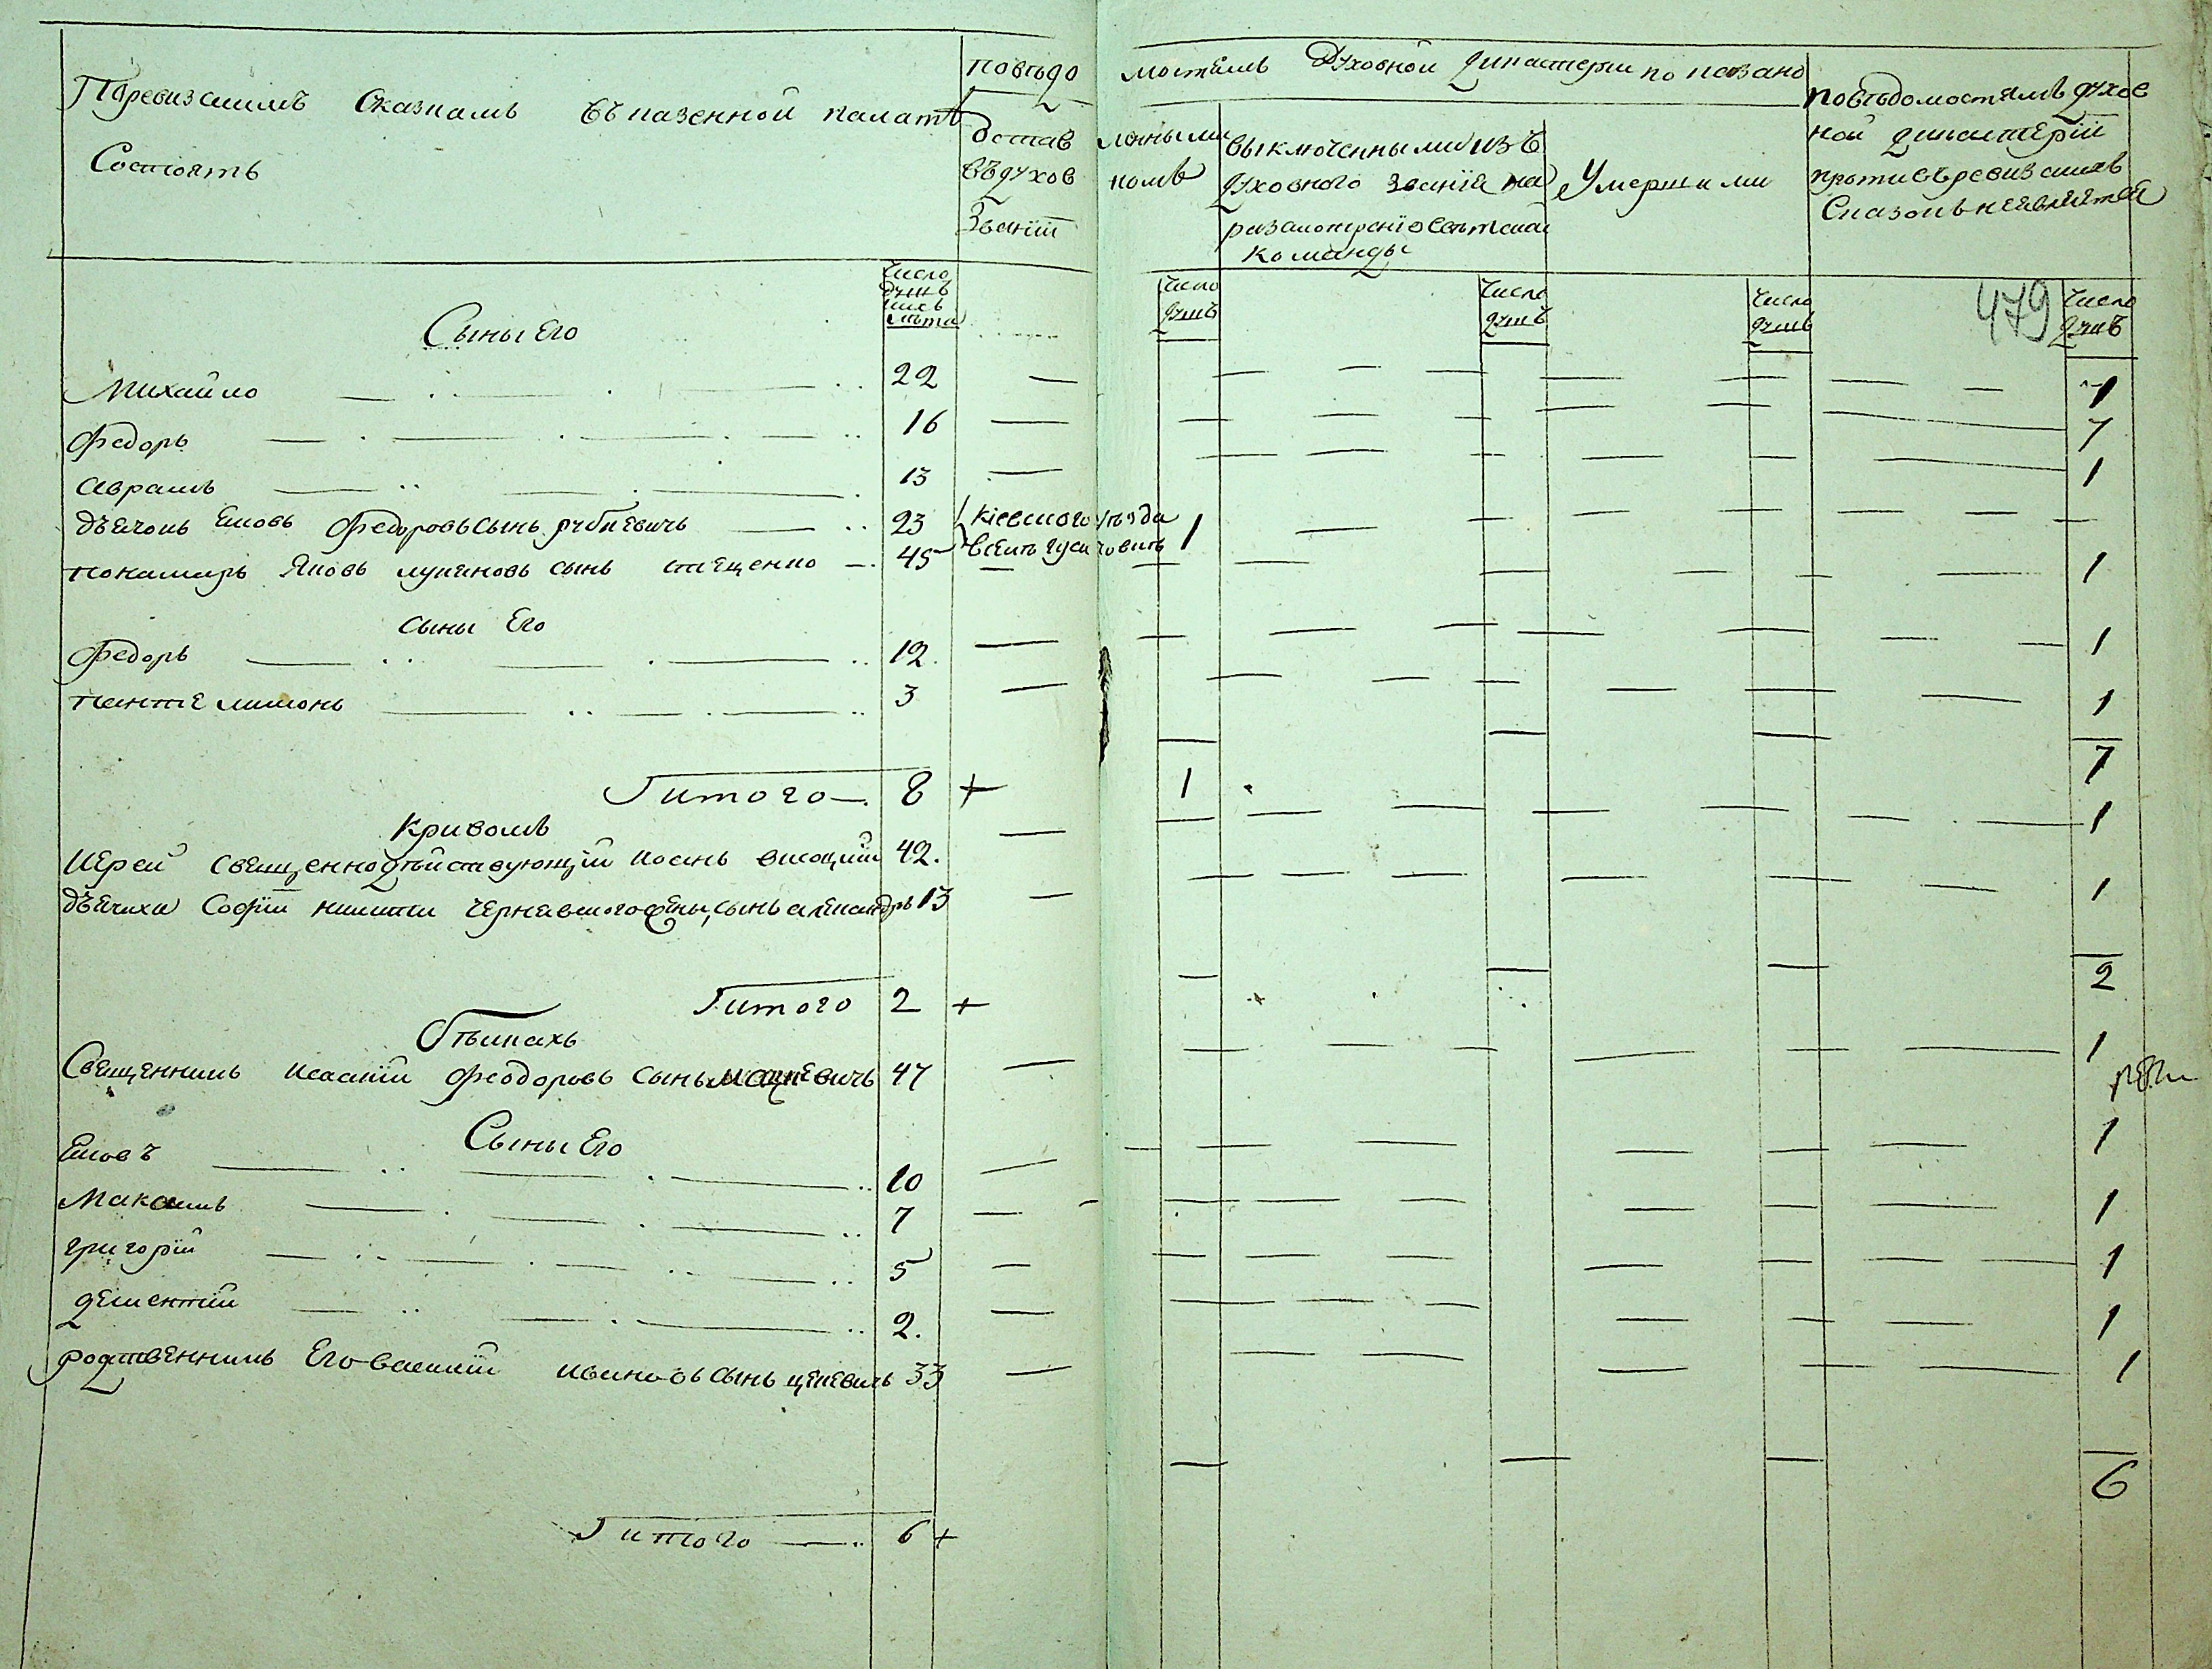 Поревизскимъ Сказкамъ въ казенной палатѣ
Состоятъ
повѣдо мостямъ Духовной дикастеріи показано
Оставленными
въдуховномъ
Званіи
Выключенными изъ
духовного званія на
разсмотреніе свѣтской
команды
Умершими
повѣдомостямъ духов
ной дикастеріи
противъ ревизскихъ
Сказокъ неявляется
479
Число
душъ
ихъ
лѣта
Число
душъ
Число
душъ
Число
душъ
Число
душъ
Сыны Его
Михайло 22 1
Федоръ 16 1
Аврамъ 13 1
дьячокъ Яковъ Федоровъ сынъ 23 Кіевского уѣзда 1
пономарь Яковъ лукяновъ сынъ 45 1
сыны Его
Федоръ 12. 1
пантелимонъ 3 1
Итого 8 + 1 7
Криволъ
Иерей священнодѣйствующій Иоанъ висоцкій 42. 1
дьячиха Софіи никиты чернявского жены, сынъ александръ 13 1
Итого 2 + 2
Священникъ Исакій Феодоровъ сынъ мацкевичъ 47 1
Сыны Его
Яковъ 10 1
Максимъ 7 1
григорій 5 1
дементій 2. 1
родственникъ Его василій ивановъ сынъ 33 1
Итого 6 + 6